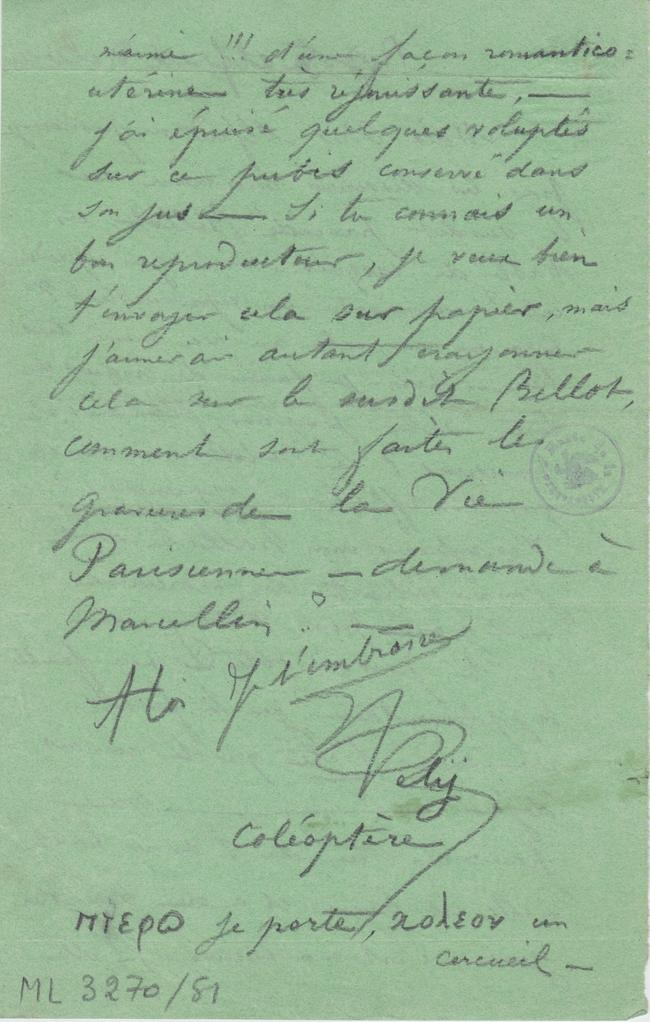 m'aime !!! d'une façon romantico=
utérine très réjouissante, —
j'ai épuisé quelques voluptés
sur ce pubis conservé dans
son jus — Si tu connais un
bon reproducteur, je veux bien
t'envoyer cela sur papier, mais
j'aimerais autant crayonner
cela sur le susdit Bellot,
comment sont faites les
gravures de la Vie
Parisienne — demande à
Marcellin ?
A toi Je t'embrasse
Fély
Coléoptère
πτερω je porte, κολεον un
cercueil —
ML 3270/81